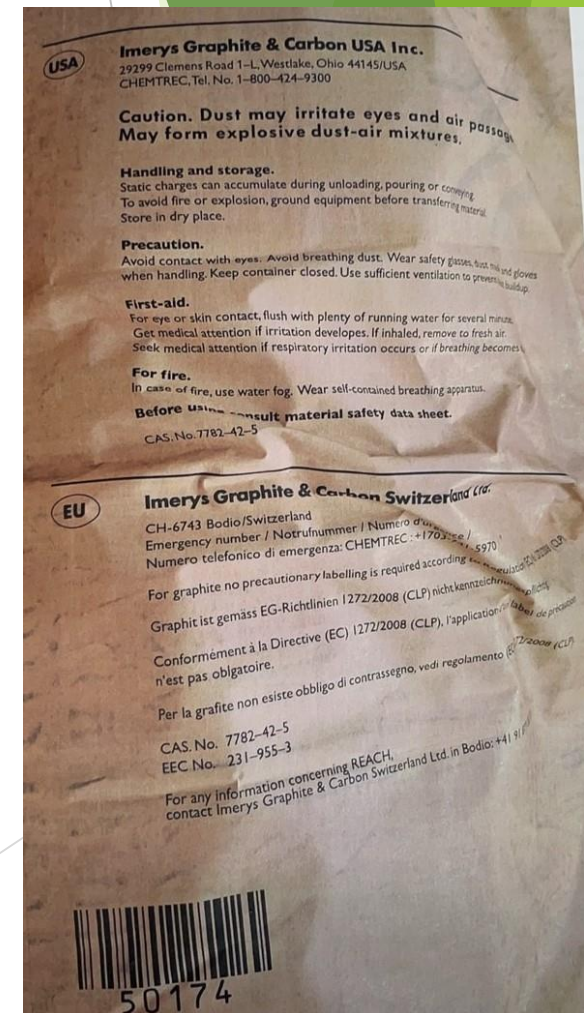 USA
Imerys Graphite & Carbon USA Inc.
29299 Clemens Road 1-L, Westlake, Ohio 44145/USA
CHEMTREC, Tel. No. 1-800-424-9300
Caution. Dust may irritate eyes and air
May form explosive dust-air mixtures.
Handling and storage.
Static charges can accumulate during unloading, pouring or conveying
To avoid fire or explosion, ground equipment before transferring material.
Store in dry place.
Precaution.
Avoid contact with eyes. Avoid breathing dust. Wear safety glasses, dust mask and gloves
when handling. Keep container closed. Use sufficient ventilation to prevent buildup.
First-aid.
For eye or skin contact, flush with plenty of running water for several minute
Get medical attention if irritation developes. If inhaled, remove to fresh air.
Seek medical attention if respiratory irritation occurs or if breathing becomes
For fire.
In case of fire, use water fog. Wear self-contained breathing apparatus.
Before material safety data sheet.
CAS. No. 7782-42-5
EU
Imerys Graphite & Carbon Switzerland Ltd.
CH-6743 Bodio/Switzerland
Emergency number / Notrufnummer / Numero
Numero telefonico di emergenza: CHEMTREC: 5970
For graphite no precautionary labelling is required according (CLP)
Graphit ist gemäss EG-Richtlinien 1272/2008 (CLP) nicht
Conformément à la Directive (EC) 1272/2008 (CLP), l'application label de précaution
n'est pas oblgatoire.
Per la grafite non esiste obbligo di contrassegno, vedi regolamento (CLP)
CAS. No. 7782-42-5
EEC No. 231-955-3
For any information concerning REACH,
contact Imerys Graphite & Carbon Switzerland Ltd. in Bodio: +41 91
50174